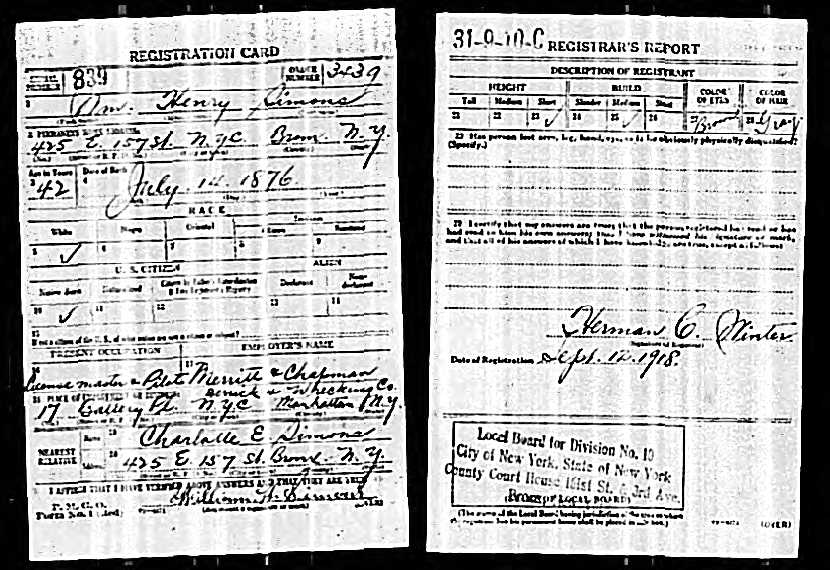 REGISTRATION CARD
SERIAL NUMBER 839
ORDER NUMBER 3439
1 Wm. Henry Simons
2 PERMANENT HOME ADDRESS:
425 E. 157 St. N.Y.C. Bronx. N.Y.
Age in Years Date of Birth
3 42 4 July 14. 1876
RACE
White Negro Oriental
5 ✓ 6 7 8 9
U. S. CITIZEN ALIEN
Native Born Naturalized Declarant Non-declarant
10 ✓ 11 12 13 14
15
If not a citizen of the U. S., of what nation are you a citizen or subject?
PRESENT OCCUPATION EMPLOYER'S NAME
16 17
License master & Pilot Merritt & Chapman
Derrick & Wrecking Co.
18 PLACE OF EMPLOYMENT OR BUSINESS:
17 Battery Pl. N.Y.C. Manhattan N.Y.
NEAREST RELATIVE
Name 19 Charlotte E Simons
Address 20 425 E. 157 St. Bronx. N.Y.
I AFFIRM THAT I HAVE VERIFIED ABOVE ANSWERS AND THAT THEY ARE TRUE
P. M. G. O.
Form No. 1 (Red)
William H. Simons
(OVER)
31-9-10-C REGISTRAR'S REPORT
DESCRIPTION OF REGISTRANT
HEIGHT BUILD COLOR OF EYES COLOR OF HAIR
Tall Medium Short Slender Medium Stout
21 22 23 ✓ 24 25 ✓ 26 27 Brown 28 Gray
29 Has person lost arm, leg, hand, eye, or is he obviously physically disqualified?
(Specify.)
30 I certify that my answers are true; that the person registered has read or has
had read to him his own answers; that I have witnessed his signature or mark,
and that all of his answers of which I have knowledge are true, except as follows:
Herman C. Winter
(Signature of Registrar)
Date of Registration Sept. 12. 1918.
Local Board for Division No. 10
City of New York, State of New York
County Court House 161st St. & 3rd Ave.
(STAMP OF LOCAL BOARD)
(The stamp of the Local Board having jurisdiction of the area in which
the registrant has his permanent home shall be placed in this box.)
(OVER)